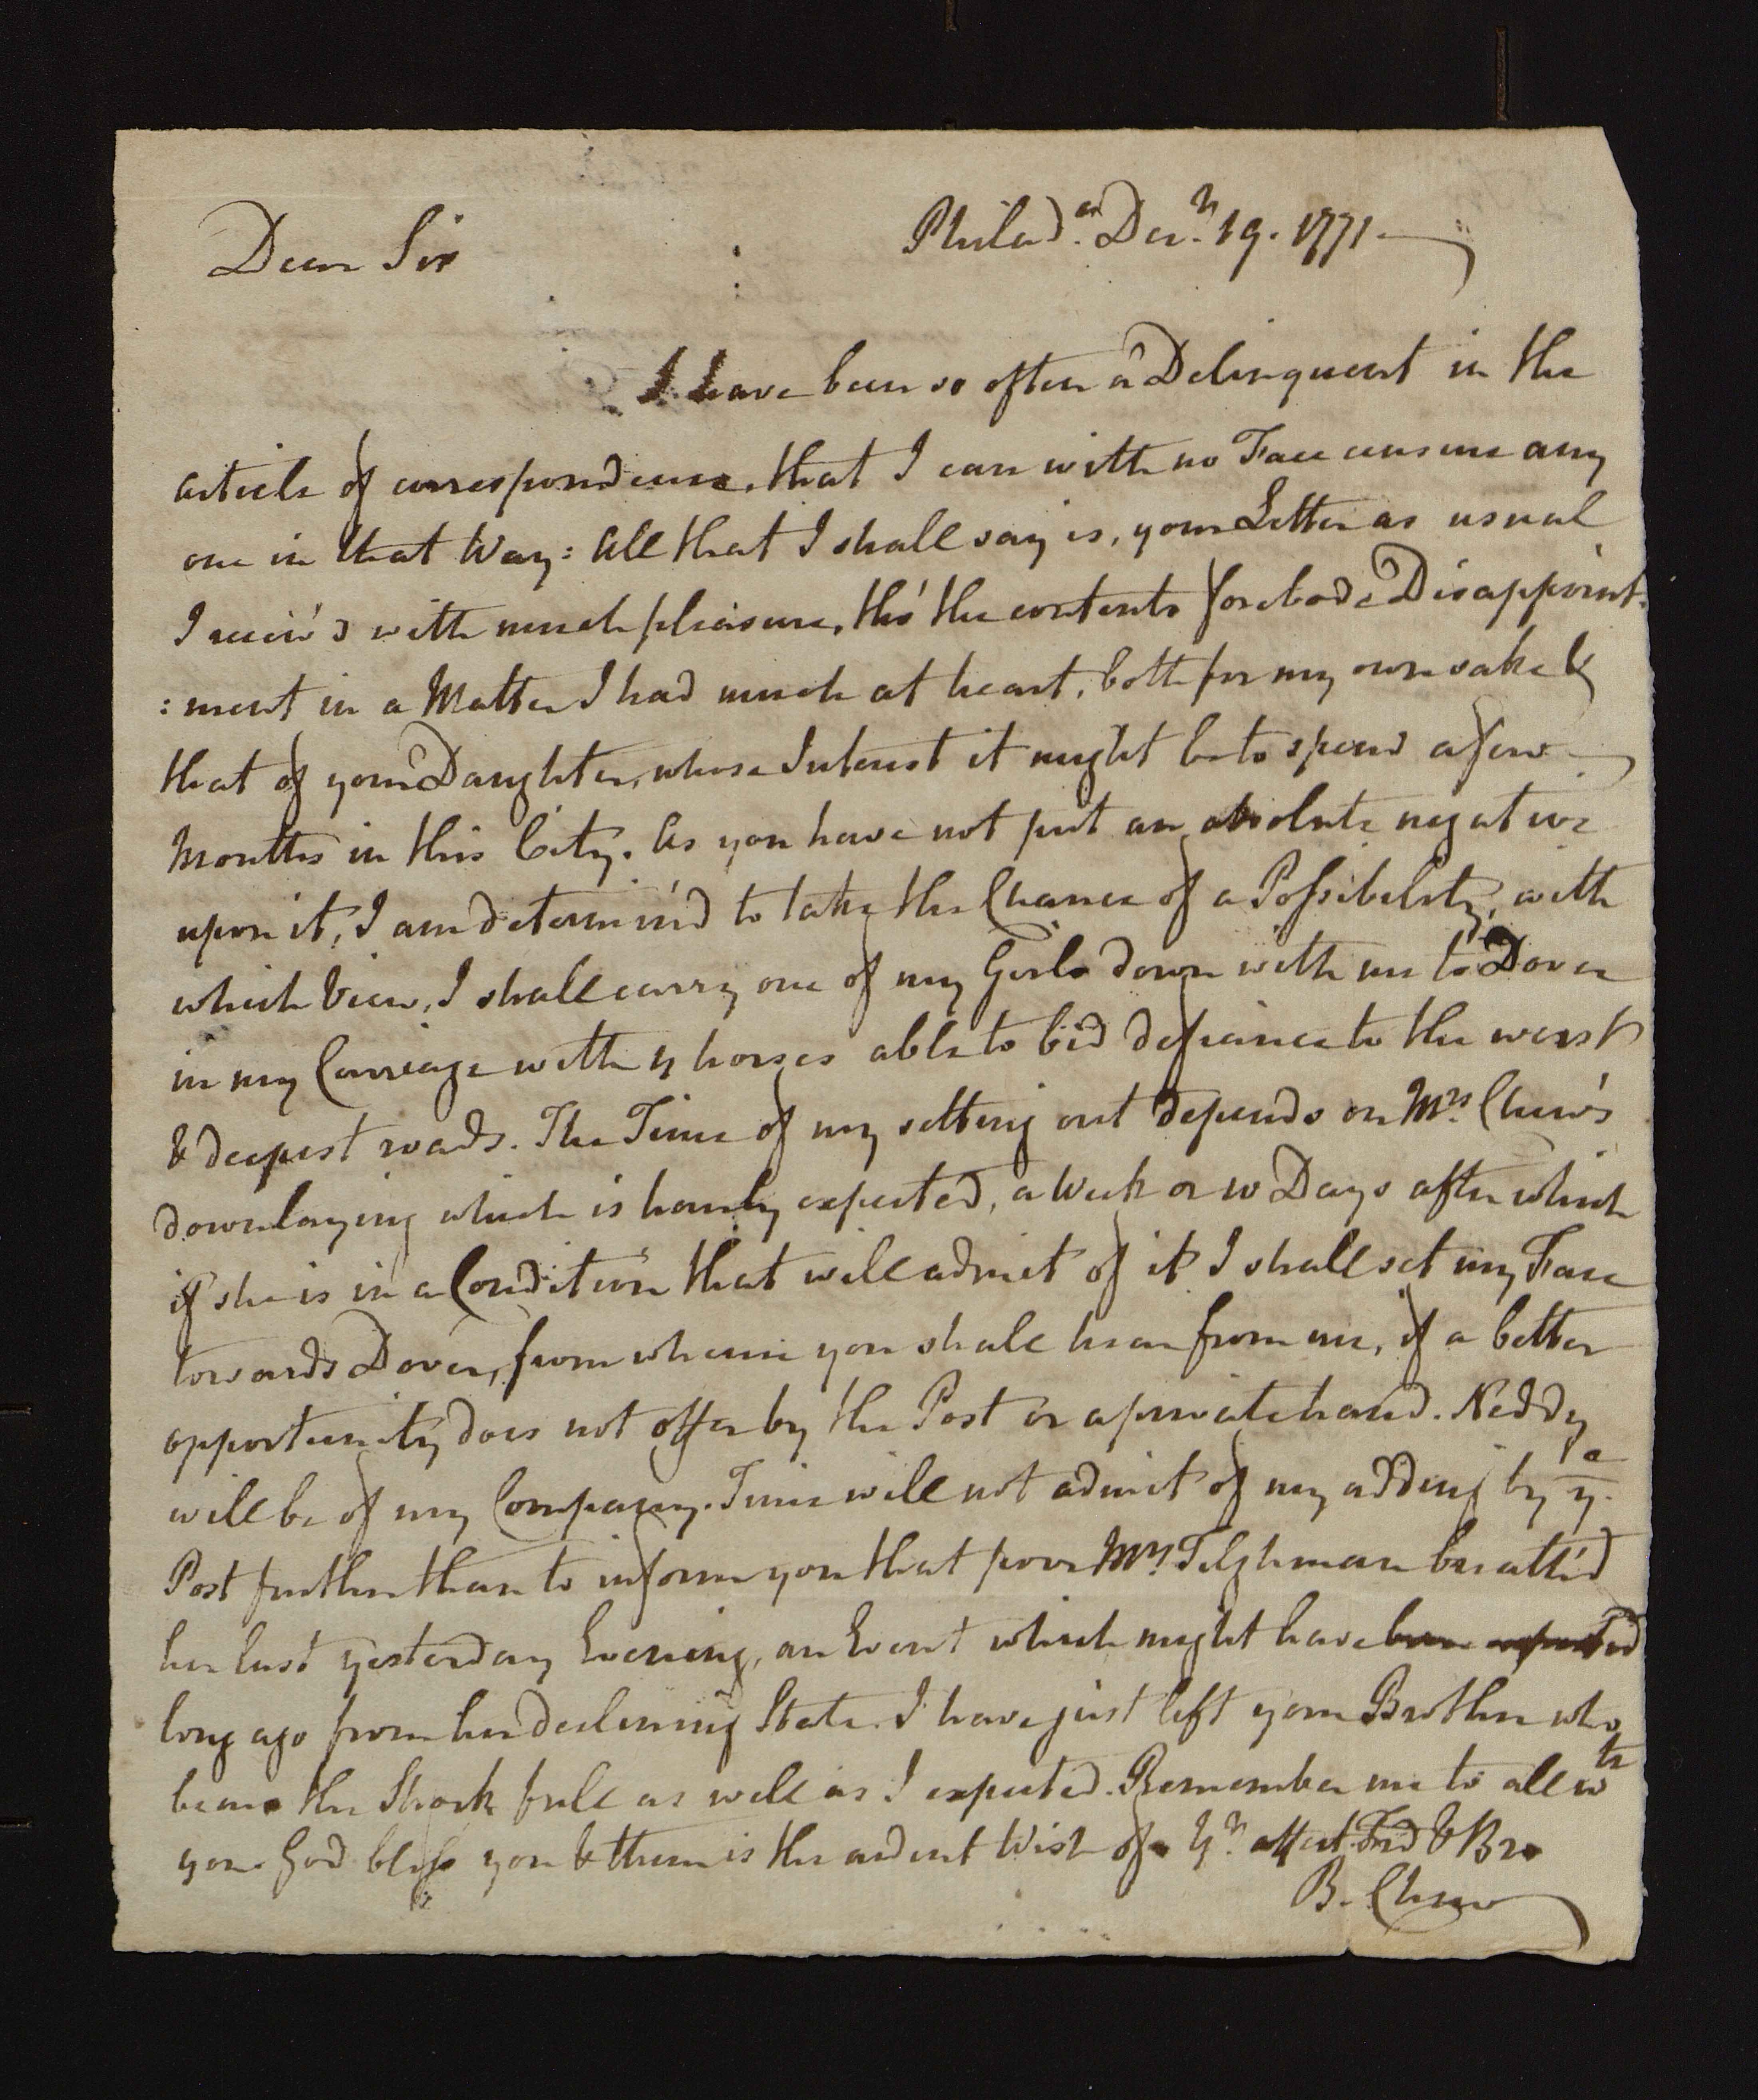 Philad.a Decr. 19. 1771
Dear Sir
I have been so often a Delinquent in the
article of correspondence, that I can with no Face censure any
one in that Way: All that I shall say is, your Letter as usual
I receiv'd with much pleasure, tho' the contents forebode Disappoint:
:ment in a Matter I had much at heart, both for my own sake &
that of your Daughter, whose Interest it might be to spend a few
Months in this City. As you have not put an absolute negative
upon it, I am determin'd to take the Chance of a Possibility, with
which View, I shall carry one of my Girls down with me to Dover
in my Carriage with 4 horses able to bid defiance to the worst
& deepest roads. The Time of my setting out depends on Mrs. Chew's
downlaying which is hourly expected, a Week or 10 Days after which
if she is in a Condition that will admit of it I shall set my Face
towards Dover, from whence you shall hear from me, if a better
opportunity does not offer by the Post or a private hand. Neddy
will be of my Company. Time will not admit of my adding by ye.
Post further than to inform you that poor Mrs. Tilghman breath'd
her last yesterday Evening, an Event which might have been expected
long ago from her declining State. I have just left your Brother who
bears the Shock full as well as I expected. Remember me to all wth
you. God bless you & them is the ardent Wish of Yr. affect. Frd & Bro
B. Chew